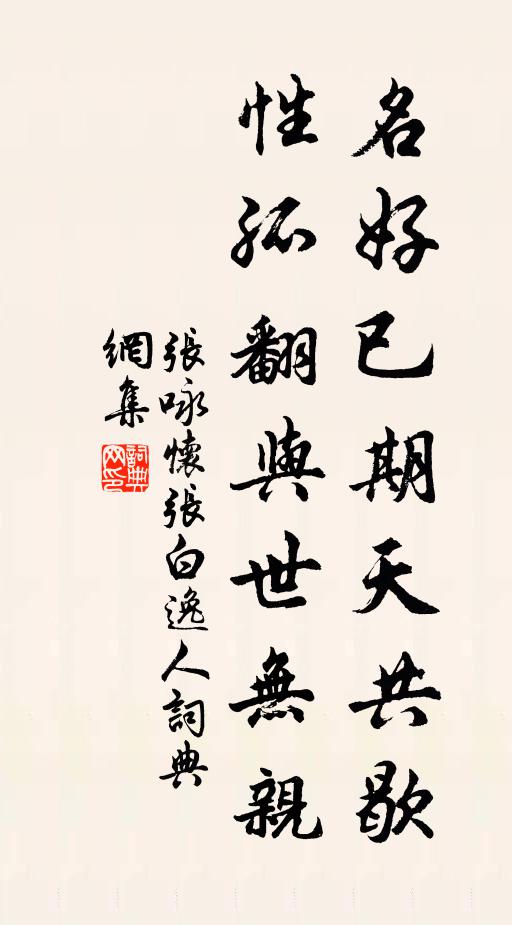 名好已期天共歇
性孤翻與世無親
張咏懷張白逸人詞典
網集
詞典
网印